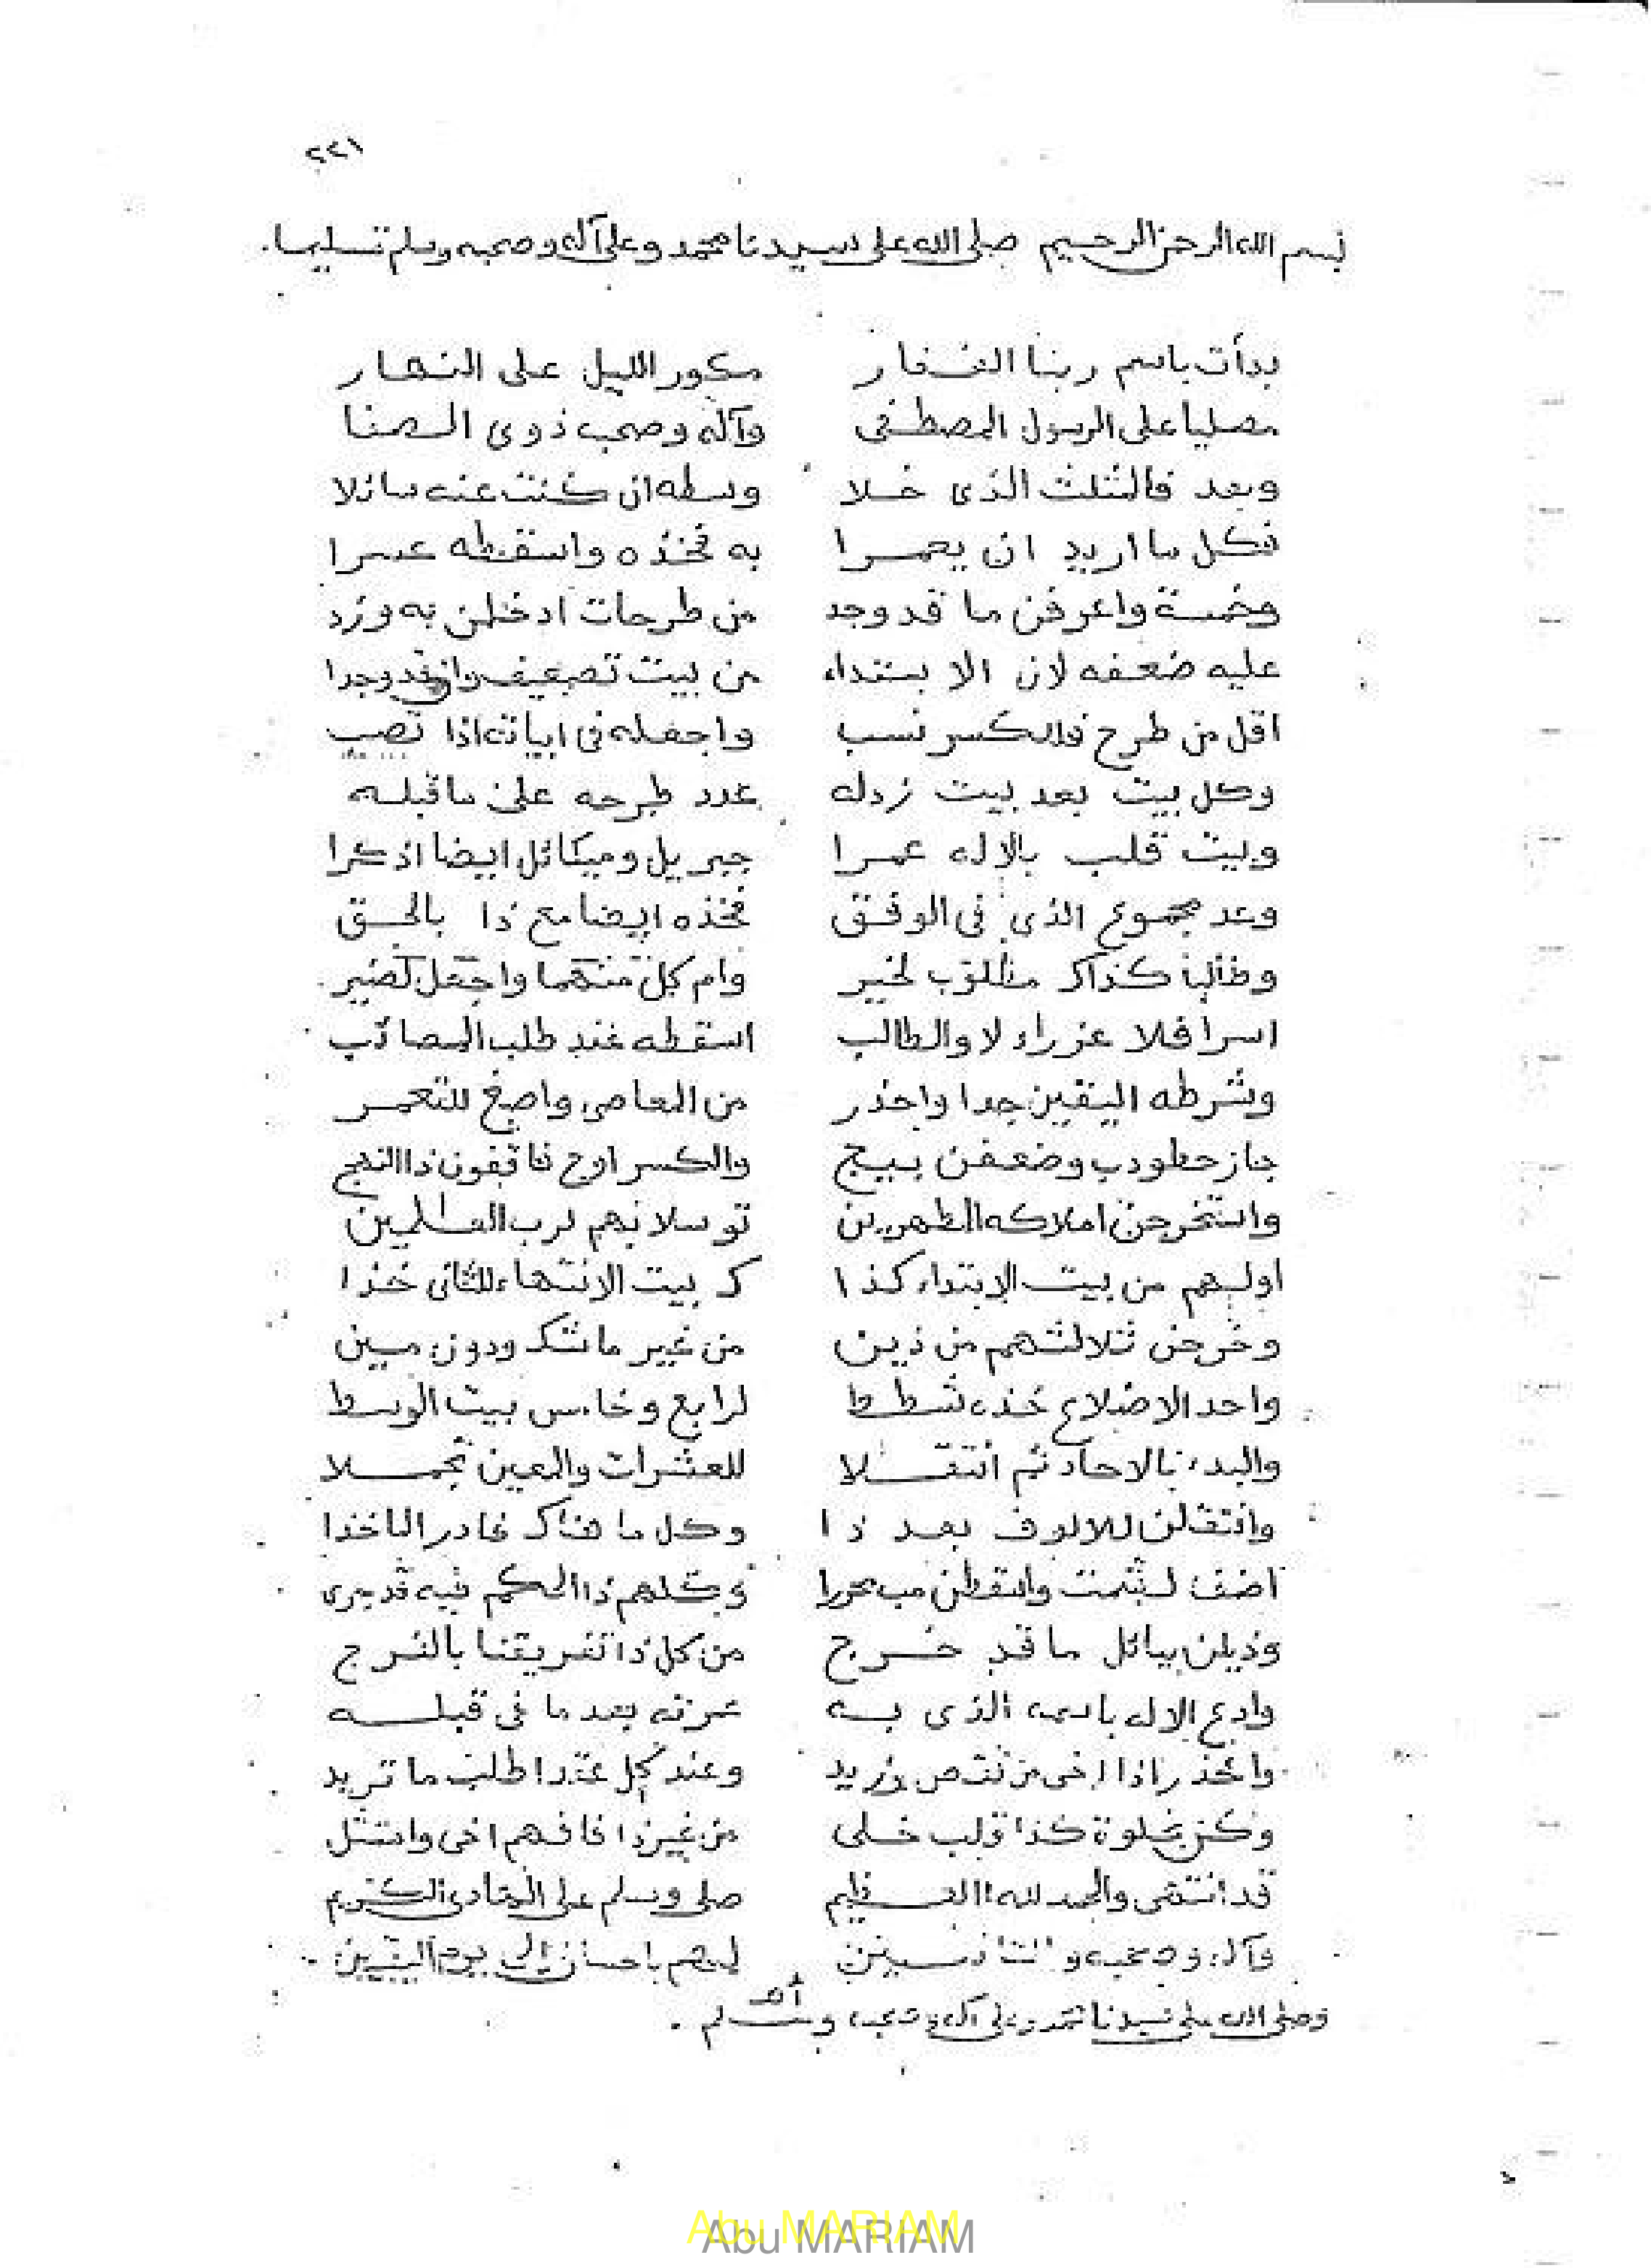 ٢٢١
بسم الله الرحمن الرحيم صلى الله على سيدنا محمد وعلى آله وصحبه وسلم تسليما.
بدأت باسم ربنا الغفار مكور الليل على النهار
مصليا على الرسول المصطفى وآله وصحب ذوى الصفا
وبعد فالمثلث الذى خلا وسطه ان كنت عنه سائلا
فكل ما اريد ان يعمرا به فخذه واسقطه عسرا
وخمسة واعرفن ما قد وجد من طرحات ادخلن به وزد
عليه ضعفه لان الا بتداء من بيت تضعيف وان قد وجدا
اقل من طرح فالكسر نسب واجعله فى ابياته اذا تصب
وكل بيت بعد بيت زد له عدد طرحه على ما قبله
وبيت قلب بالاله عمرا جبريل وميكائل ايضا اذكرا
وعد مجموع الذى فى الوفق فخذه ايضا مع ذا بالحق
وطالبا كذاك مطلوب لخير وام كل منهما واجعل لضير
اسرافلا عزراءلا والطالب اسقطه عند طلب المصائب
وشرطه اليقين جدا واحذر من المعاصى واصغ للتعمر
جاز حطودب وضعفن ببيج والكسر اوج فاقفون ذا النهج
واستخرجن املاكه المطهرين توسلا بهم لرب العالمين
اولهم من بيت الابتداء كذا ك بيت الانتهاء للثانى خذا
وخرجن ثلالثهم من ذين من غير ما شك ودون مين
واحد الاضلاع خذه شطط لرابع وخامس بيت الوسط
والبدء بالاحاد ثم انتقلا للعشرات والمين تجملا
وانتقلن للالوف بعد ذا وكل ما هناك غادر الماخذا
اضف لـ واسقطن محررا وكلهم ذا الحكم فيه قد جرى
وذيلن بيائل ما قد خرج من كل ذا تفريقنا بالفرج
وادع الاله باسمه الذى به عزته بعد ما فى قبله
واحذر اذا اخى من نقص وزيد وعند كل عقد اطلب ما تريد
وكن بخلوة كذا قلب خلى من غير ذا فافهم اخى وامتثل
قد انتهى والحمد لله العظيم صلى وسلم على الهادى الكريم
وآله وصحبه والتابعين لهم باحسان الى يوم اليقين.
وصلى الله على سيدنا محمد وعلى آله وصحبه وسلم.
Abu MARIAM